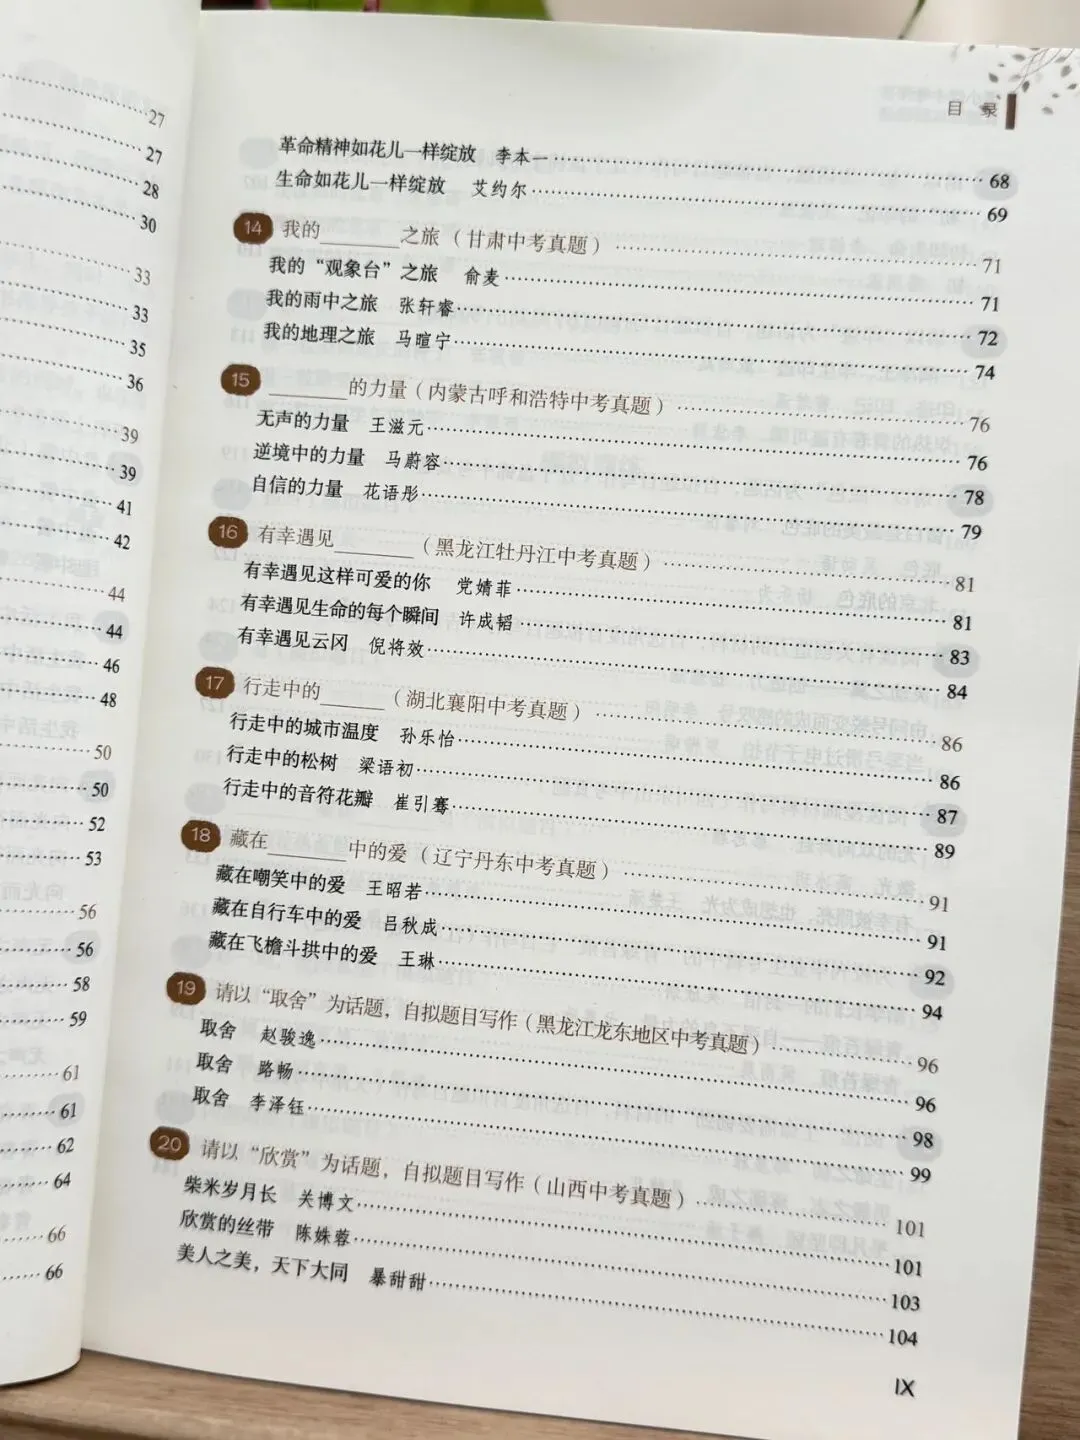 27
27
28
30
33
33
35
36
39
39
41
42
44
44
46
48
50
50
52
53
56
56
58
59
61
61
62
64
66
66
目 录
革命精神如花儿一样绽放 李本一 68
生命如花儿一样绽放 艾约尔 69
14 我的________之旅（甘肃中考真题） 71
我的“观象台”之旅 俞麦 71
我的雨中之旅 张轩睿 72
我的地理之旅 马暄宁 74
15 ________的力量（内蒙古呼和浩特中考真题） 76
无声的力量 王滋元 76
逆境中的力量 马蔚容 78
自信的力量 花语彤 79
16 有幸遇见________（黑龙江牡丹江中考真题） 81
有幸遇见这样可爱的你 党婧菲 81
有幸遇见生命的每个瞬间 许成韬 83
有幸遇见云冈 倪将效 84
17 行走中的______（湖北襄阳中考真题） 86
行走中的城市温度 孙乐怡 86
行走中的松树 梁语初 87
行走中的音符花瓣 崔引骞 89
18 藏在________中的爱（辽宁丹东中考真题） 91
藏在嘲笑中的爱 王昭若 91
藏在自行车中的爱 吕秋成 92
藏在飞檐斗拱中的爱 王琳 94
19 请以“取舍”为话题，自拟题目写作（黑龙江龙东地区中考真题） 96
取舍 赵骏逸 96
取舍 路畅 98
取舍 李泽钰 99
20 请以“欣赏”为话题，自拟题目写作（山西中考真题） 101
柴米岁月长 关博文 101
欣赏的丝带 陈姝蓉 103
美人之美，天下大同 暴甜甜 104
IX